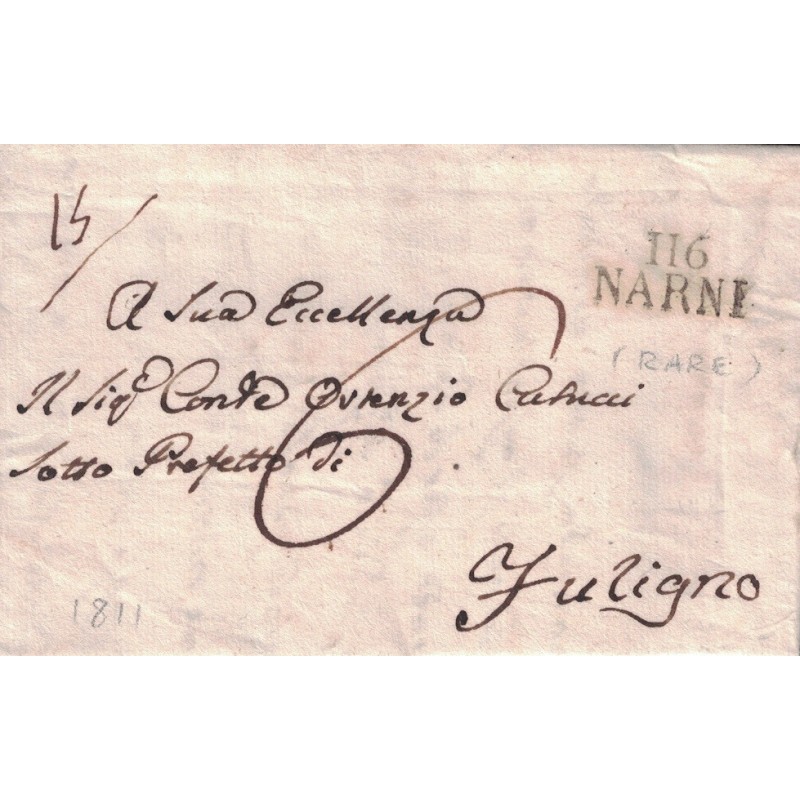 15/
116
NARNI
A Sua Eccellenza
(RARE)
Il Sigr Conte
Sotto Prefetto di
6
Fuligno
1811